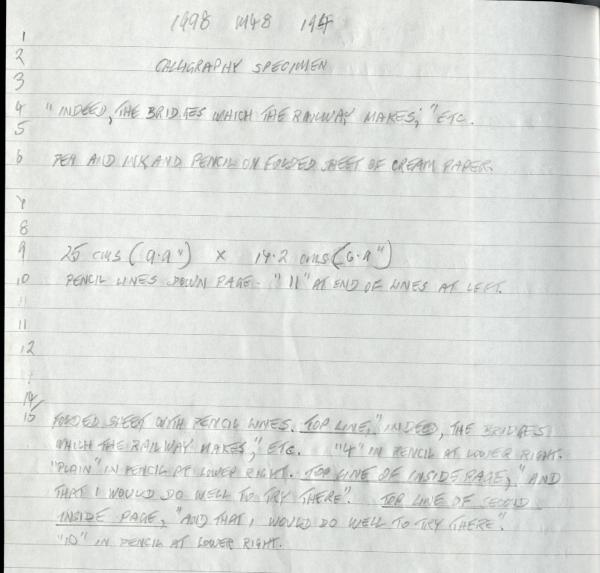 1498 1448 144
1
2 CALLIGRAPHY SPECIMEN
3
4 "INDEED, THE BRIDGES WHICH THE RAILWAY MAKES," ETC.
5
6 PEN AND INK AND PENCIL ON FOLDED SHEET OF CREAM PAPER.
7
8
9 25 cms (9.9") x 17.2 cms (6.8")
10 PENCIL LINES DOWN PAGE. "11" AT END OF LINES AT LEFT.
11
11
12
14/
15 FOLDED SHEET WITH PENCIL LINES. TOP LINE, "INDEED, THE BRIDGES
WHICH THE RAILWAY MAKES," ETC. "4" IN PENCIL AT LOWER RIGHT.
"PLAIN" IN PENCIL AT LOWER RIGHT. TOP LINE OF INSIDE PAGE, "AND
THAT I WOULD DO WELL TO TRY THERE". TOP LINE OF SECOND
INSIDE PAGE, "AND THAT I WOULD DO WELL TO TRY THERE."
"10" IN PENCIL AT LOWER RIGHT.